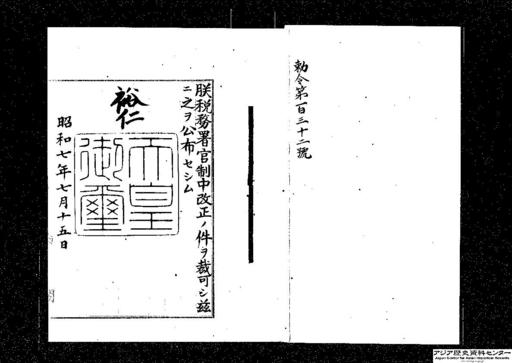 勅令第百三十二號
朕税務署官制中改正ノ件ヲ裁可シ茲
ニ之ヲ公布セシム
裕仁
天皇
御璽
昭和七年七月十五日
アジア歴史資料センター
Japan Center for Asian Historical Records